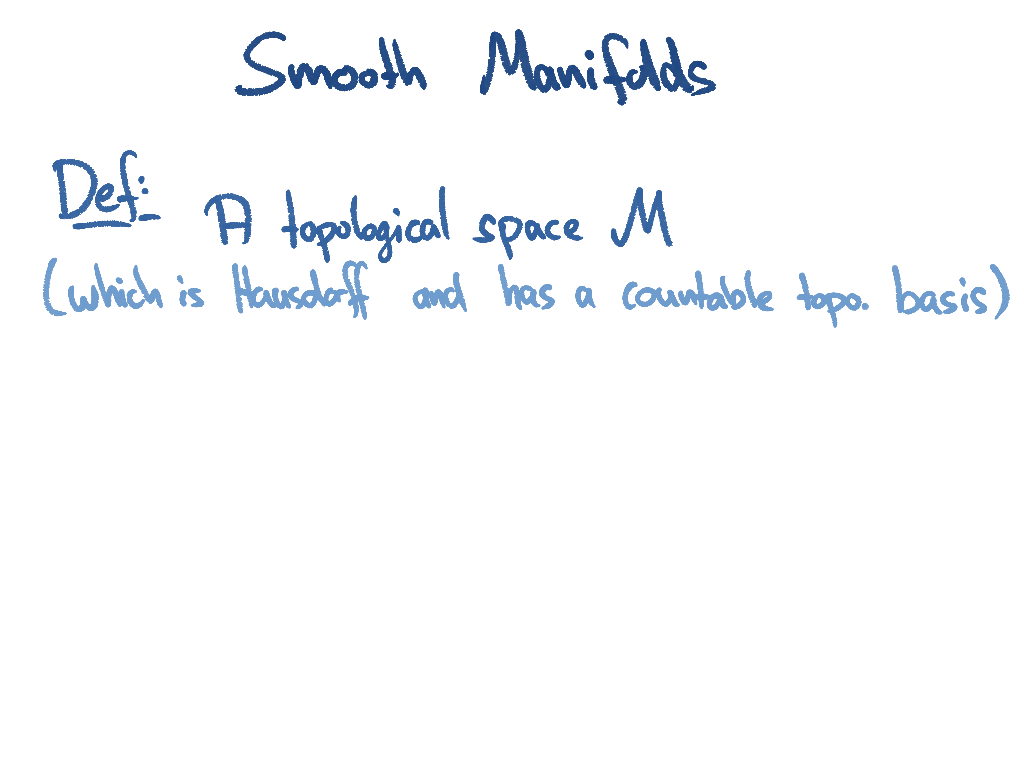 Smooth Manifolds
Def: A topological space M
(which is Hausdorff and has a countable topo. basis)